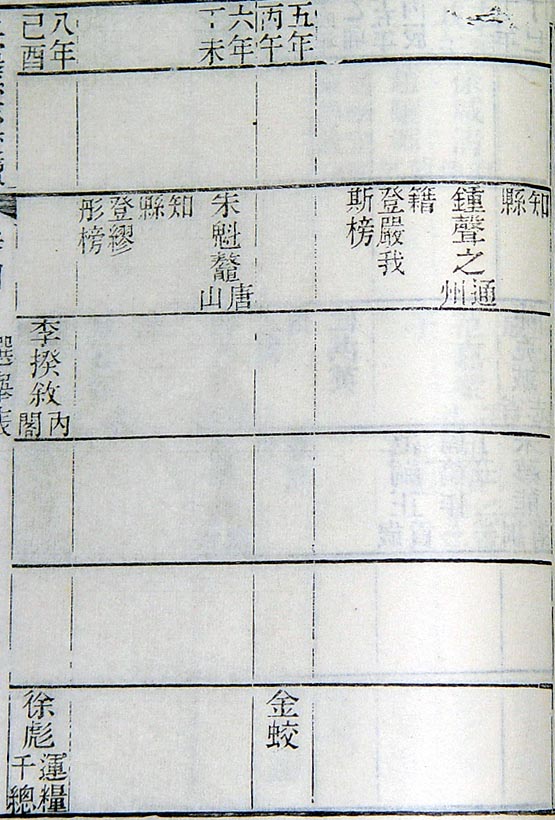 知縣
鍾聲之
通州
籍
登嚴我
斯榜
五年
丙午
金蛟
六年
丁未
朱魁鼇
唐山
知縣
登繆
彤榜
八年
己酉
李揆敘
內閣
徐彪
運糧
千總
選舉表